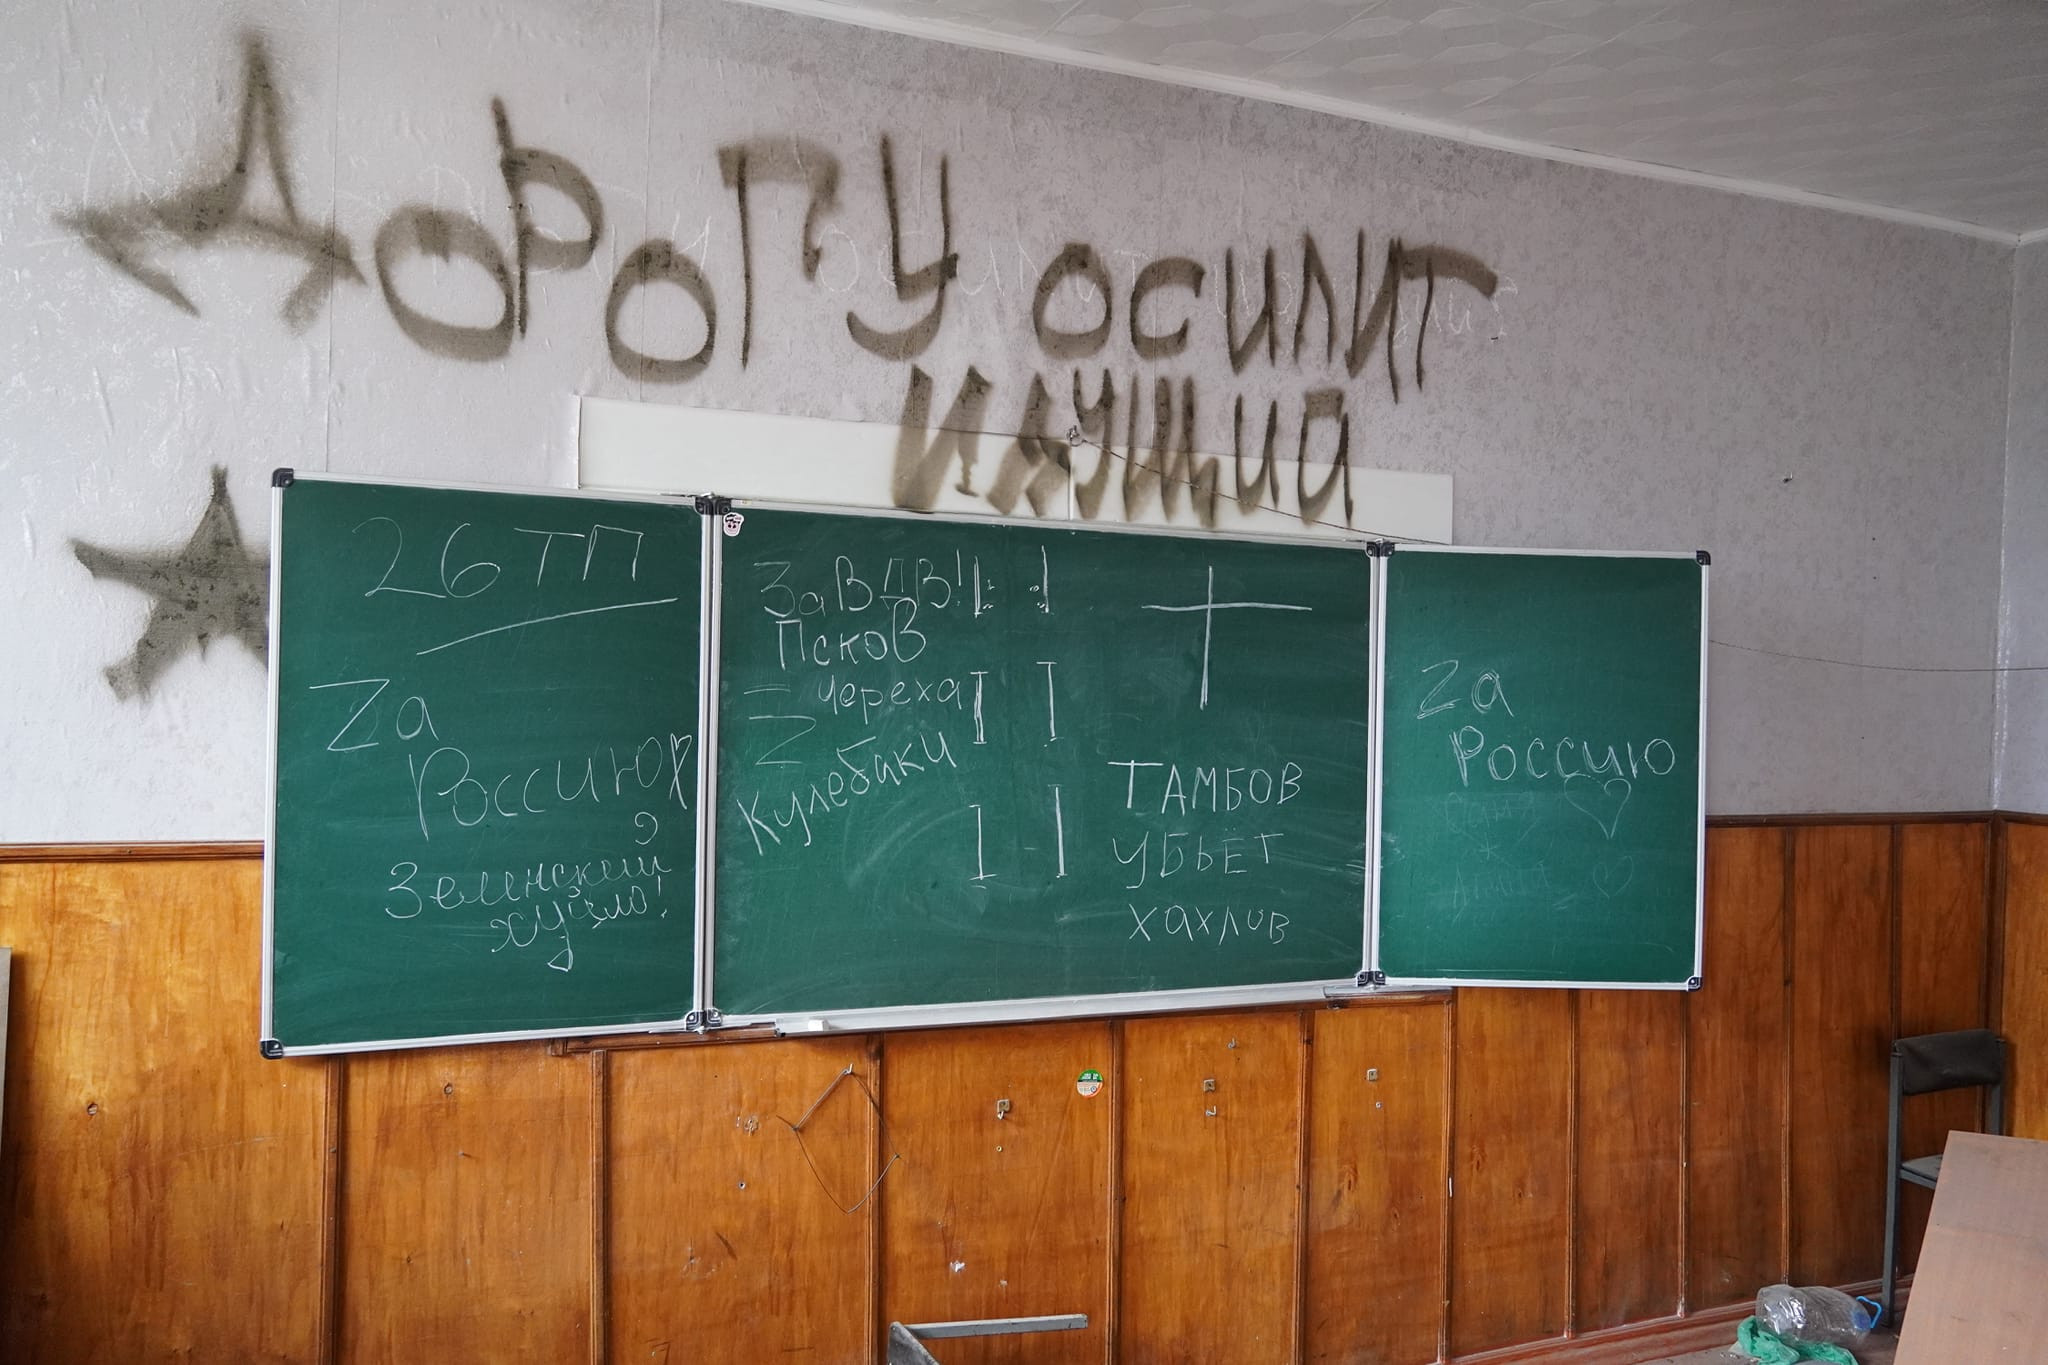 Дорогу осилит
идущиа
26 ТП
Zа
Россиюю
Э
Зеленский
хуйло!
За ВДВ!!!
Псков
Череха
Z
Кулебаки
ТАМБОВ
УБЬЁТ
ХАХЛОВ
Zа
Россию